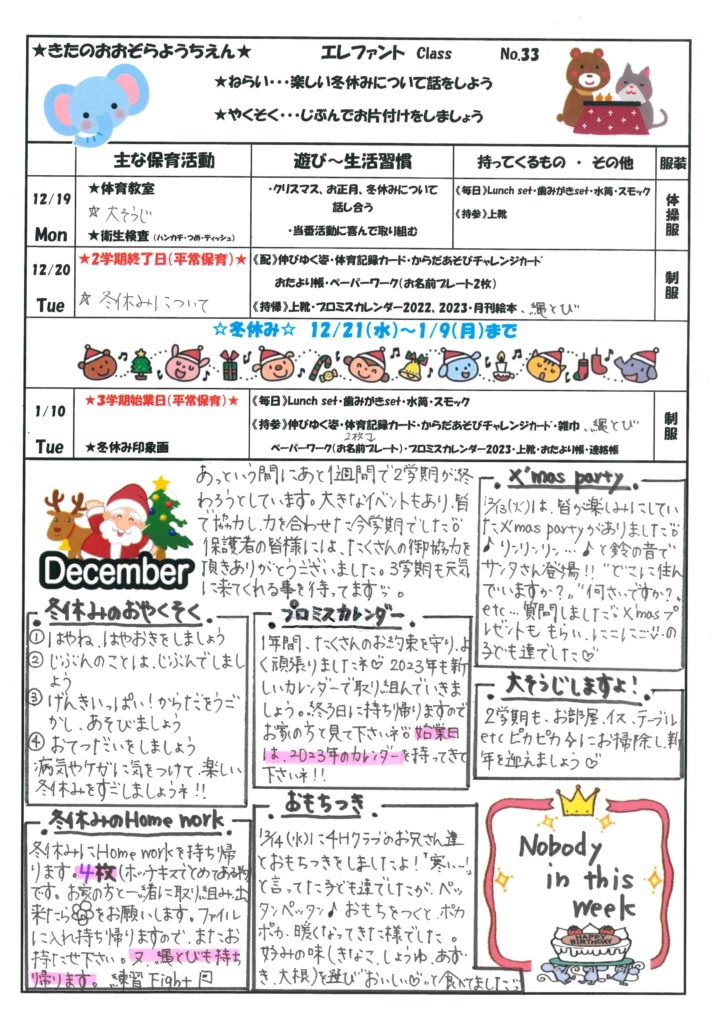 ★きたのおおぞらようちえん★ エレファント Class No.33
★ねらい・・・楽しい冬休みについて話をしよう
★やくそく・・・じぶんでお片付けをしましょう
主な保育活動 遊び～生活習慣 持ってくるもの ・ その他 服装
12/19
Mon
★体育教室
☆大そうじ
★衛生検査 (ハンカチ・つめ・ティッシュ)
・クリスマス、お正月、冬休みについて
話し合う
・当番活動に喜んで取り組む
《毎日》Lunch set・歯みがきset・水筒・スモック
《持参》上靴
体操服
12/20
Tue
★2学期終了日(平常保育)★
☆冬休みについて
《配》伸びゆく姿・体育記録カード・からだあそびチャレンジカード
おたより帳・ペーパーワーク(お名前プレート2枚)
《持帰》上靴・プロミスカレンダー2022、2023・月刊絵本、縄とび
制服
☆冬休み☆ 12/21(水)～1/9(月)まで
1/10
Tue
★3学期始業日(平常保育)★
★冬休み印象画
《毎日》Lunch set・歯みがきset・水筒・スモック
《持参》伸びゆく姿・体育記録カード・からだあそびチャレンジカード・雑巾、縄とび
2枚
ペーパーワーク(お名前プレート)・プロミスカレンダー2023・上靴・おたより帳・連絡帳
制服
December
あっという間にあと1週間で2学期が終
わろうとしています。大きなイベントもあり、皆
で協力し、力を合わせた今学期でした
保護者の皆様には、たくさんの御協力を
頂きありがとうございました。3学期も元気
に来てくれる事を待ってます。
X'mas party
12/13(火)は、皆が楽しみにしてい
たX'mas partyがありました
♪リンリンリン…♪と鈴の音で
サンタさん登場!!"どこに住ん
でいますか?""何さいですか?"
etc…質問しましたX'masプ
レゼントももらい、にこにこの
子ども達でした♡
冬休みのおやくそく
① はやね、はやおきをしましょう
② じぶんのことは、じぶんでしまし
ょう
③ げんきいっぱい!からだをうご
かし、あそびましょう
④ おてつだいをしましょう
病気やケガに気をつけて、楽しい
冬休みをすごしましょうネ!!
プロミスカレンダー
1年間、たくさんのお約束を守り、よ
く頑張りましたネ♡2023年も新
しいカレンダーで取り組んでいきま
しょう。終了日に持ち帰りますので
お家の方で見て下さいネ 始業日
は、2023年のカレンダーを持ってきて
下さいネ!!
大そうじしますよ!
2学期も、お部屋、イス、テーブル
etcピカピカにお掃除し、新
年を迎えましょう♡
冬休みのHome work
冬休みにHome workを持ち帰
ります。4枚(ホッチキスでとめてある物)
です。お家の方と一緒に取り組み、出
来たら をお願いします。ファイル
に入れ持ち帰りますので、またお
持たせ下さい。又、縄とびも持ち
帰ります。練習Fight
おもちつき
12/14(水)に4Hクラブのお兄さん達
とおもちつきをしましたよ!「寒い～!」
と言ってた子ども達でしたが、ペッ
タンペッタン♪おもちをつくと、ポカ
ポカ、暖くなってきた様でした。
好みの味(きなこ、しょうゆ、あず
き、大根)を選び"おいしい♡"って食べてました
Nobody
in this
week
HAPPY
BIRTHDAY